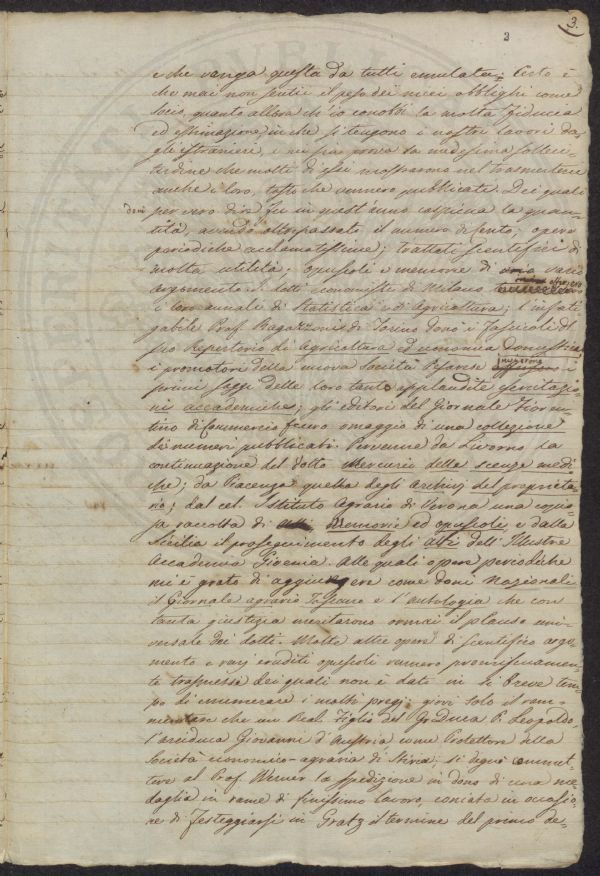 3.
3
e che venga questa da tutti emulata; Certo è
che mai non sentii il peso dei miei obblighi come
Socio, quanto allora ch'io conobbi la molta fiducia
ed estimazione, in che si tengono i nostri lavori da
gli stranieri, e ne sia prova la medesima solleci-
tudine che molti di essi mostrarono nel trasmettere
anche i loro, tosto che vennero pubblicati. Dei quali
doni per vero dire fu in quest'anno copiosa la quan-
tità, avendo oltrepassato il numero di cento; opere
periodiche acclamatissime; trattati scientifici di
molta utilità; opuscoli e memorie di vario
argomento. I dotti economisti di Milano
i loro annali di Statistica e di Agricoltura; l'infati
gabile Prof. Ragazzoni di Torino donò i fascicoli del
suo Repertorio di Agricoltura Economia Domestica;
i promotori della nuova Società Pesarese i
primi saggi delle loro tanto applaudite esercitazio
ni accademiche; gli editori del Giornale Fioren-
tino di Commercio fecero omaggio di una collezione
di numeri pubblicati. Pervenne da Livorno la
continuazione del dotto Mercurio delle scienze medi
che; da Piacenza quella degli Archivj del proprieta-
rio; dal cel. Istituto Agrario di Verona una copio-
sa raccolta di Memorie ed opuscoli e dalla
Sicilia il proseguimento degli Atti dell'Illustre
Accademia Gioenia. Alle quali opere periodiche
mi è grato di aggiungere come doni Nazionali
il Giornale agrario Toscano e l'antologia che con
tanta giustizia meritarono ormai il plauso uni-
versale dei dotti. Molte altre opere di scientifico argo-
mento e varj eruditi opuscoli vennero promiscuamen-
te trasmessi dei quali non è dato in sì breve tem-
po di enumerare i molti pregj; giovi solo il ram-
mentare che un Real Figlio del Granduca P. Leopoldo
l'arciduca Giovanni d'Austria come Protettore della
Società economico-agraria di Stiria, si degnò commet-
tere al Prof. Werner la spedizione in dono di una me-
daglia in rame di finissimo lavoro, coniata in occasio-
ne di festeggiarsi in Gratz il termine del primo de-